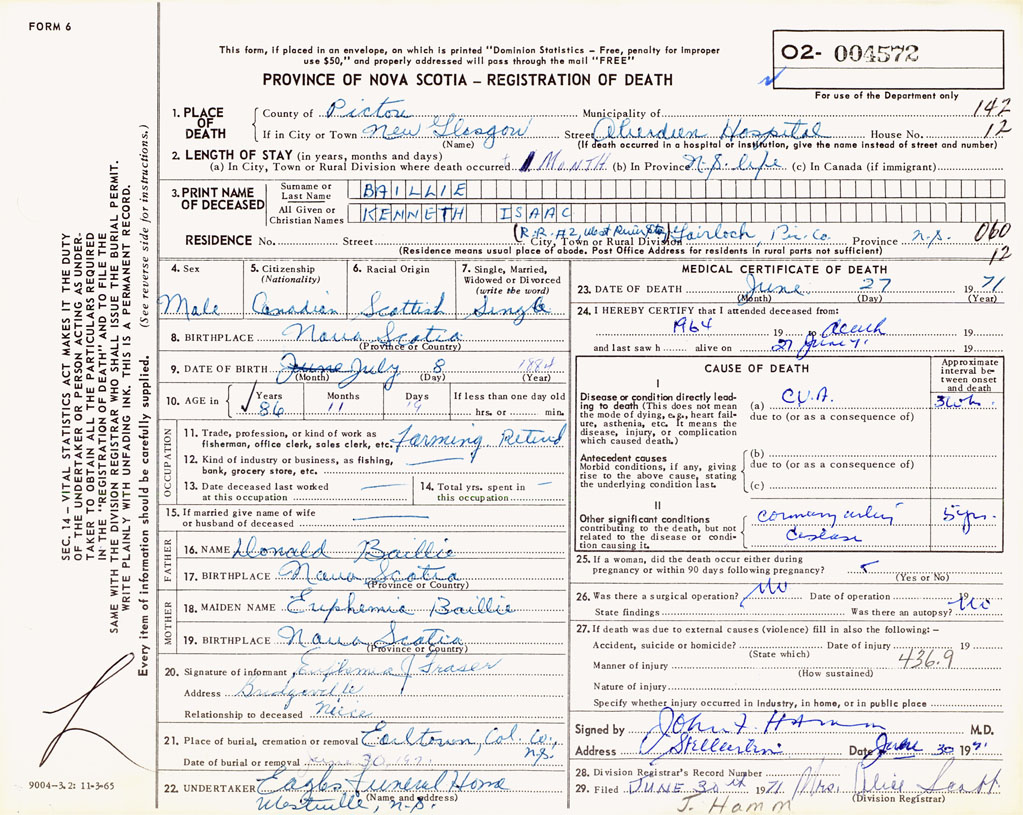 FORM 6
This form, if placed in an envelope, on which is printed "Dominion Statistics – Free, penalty for improper
use $50," and properly addressed will pass through the mail "FREE"
PROVINCE OF NOVA SCOTIA – REGISTRATION OF DEATH
02- 004572
For use of the Department only
SEC. 14 – VITAL STATISTICS ACT MAKES IT THE DUTY
OF THE UNDERTAKER OR PERSON ACTING AS UNDER-
TAKER TO OBTAIN ALL THE PARTICULARS REQUIRED
IN THE "REGISTRATION OF DEATH" AND TO FILE THE
SAME WITH THE DIVISION REGISTRAR WHO SHALL ISSUE THE BURIAL PERMIT.
WRITE PLAINLY WITH UNFADING INK. THIS IS A PERMANENT RECORD.
Every item of information should be carefully supplied. (See reverse side for instructions.)
1. PLACE OF DEATH County of Pictou Municipality of 142
If in City or Town New Glasgow Street Aberdeen Hospital House No. 12
(Name) (If death occurred in a hospital or institution, give the name instead of street and number)
2. LENGTH OF STAY (in years, months and days)
(a) In City, Town or Rural Division where death occurred 1 MONTH (b) In Province N.S. life (c) In Canada (if immigrant)
3. PRINT NAME OF DECEASED Surname or Last Name BAILLIE
All Given or Christian Names KENNETH ISAAC
RESIDENCE No. Street (R.R.#2, West River Sta) Gairloch, Pic. Co. Province N.S. 060
City, Town or Rural Division
(Residence means usual place of abode. Post Office Address for residents in rural parts not sufficient) 12
4. Sex 5. Citizenship (Nationality) 6. Racial Origin 7. Single, Married, Widowed or Divorced (write the word)
Male Canadian Scottish Single
8. BIRTHPLACE Nova Scotia
(Province or Country)
9. DATE OF BIRTH June July 8 1884
(Month) (Day) (Year)
10. AGE in Years Months Days If less than one day old
86 11 19 hrs. or min.
OCCUPATION
11. Trade, profession, or kind of work as fisherman, office clerk, sales clerk, etc. Farming Retired
12. Kind of industry or business, as fishing, bank, grocery store, etc.
13. Date deceased last worked at this occupation 14. Total yrs. spent in this occupation
15. If married give name of wife or husband of deceased
FATHER
16. NAME Donald Baillie
17. BIRTHPLACE Nova Scotia
(Province or Country)
MOTHER
18. MAIDEN NAME Euphemia Baillie
19. BIRTHPLACE Nova Scotia
(Province or Country)
20. Signature of informant Euphemia J Fraser
Address Bridgeville
Relationship to deceased Niece
21. Place of burial, cremation or removal Earltown, Col. Co., N.S.
Date of burial or removal June 30, 1971
22. UNDERTAKER Eagles Funeral Home
(Name and address)
Westville, N.S.
9004–3.2: 11-3-65
MEDICAL CERTIFICATE OF DEATH
23. DATE OF DEATH June 27 1971
(Month) (Day) (Year)
24. I HEREBY CERTIFY that I attended deceased from:
1964 19 to death
and last saw h alive on 27 June 71 19
CAUSE OF DEATH
Approximate interval between onset and death
I
Disease or condition directly leading to death (This does not mean the mode of dying, e.g., heart failure, asthenia, etc. It means the disease, injury, or complication which caused death.)
(a) C.V.A. 3 wks.
due to (or as a consequence of)
Antecedent causes
Morbid conditions, if any, giving rise to the above cause, stating the underlying condition last.
(b)
due to (or as a consequence of)
(c)
II
Other significant conditions contributing to the death, but not related to the disease or condition causing it.
coronary artery disease 5 yrs.
25. If a woman, did the death occur either during pregnancy or within 90 days following pregnancy?
(Yes or No)
26. Was there a surgical operation? No Date of operation 19
State findings Was there an autopsy? No
27. If death was due to external causes (violence) fill in also the following: –
Accident, suicide or homicide? Date of injury 19
(State which) 436.9
Manner of injury
(How sustained)
Nature of injury
Specify whether injury occurred in industry, in home, or in public place
Signed by John F. Hamm M.D.
Address Stellarton Date June 30 1971
28. Division Registrar's Record Number
29. Filed JUNE 30th 1971 Mrs. Alise Scott
(Division Registrar)
J. Hamm